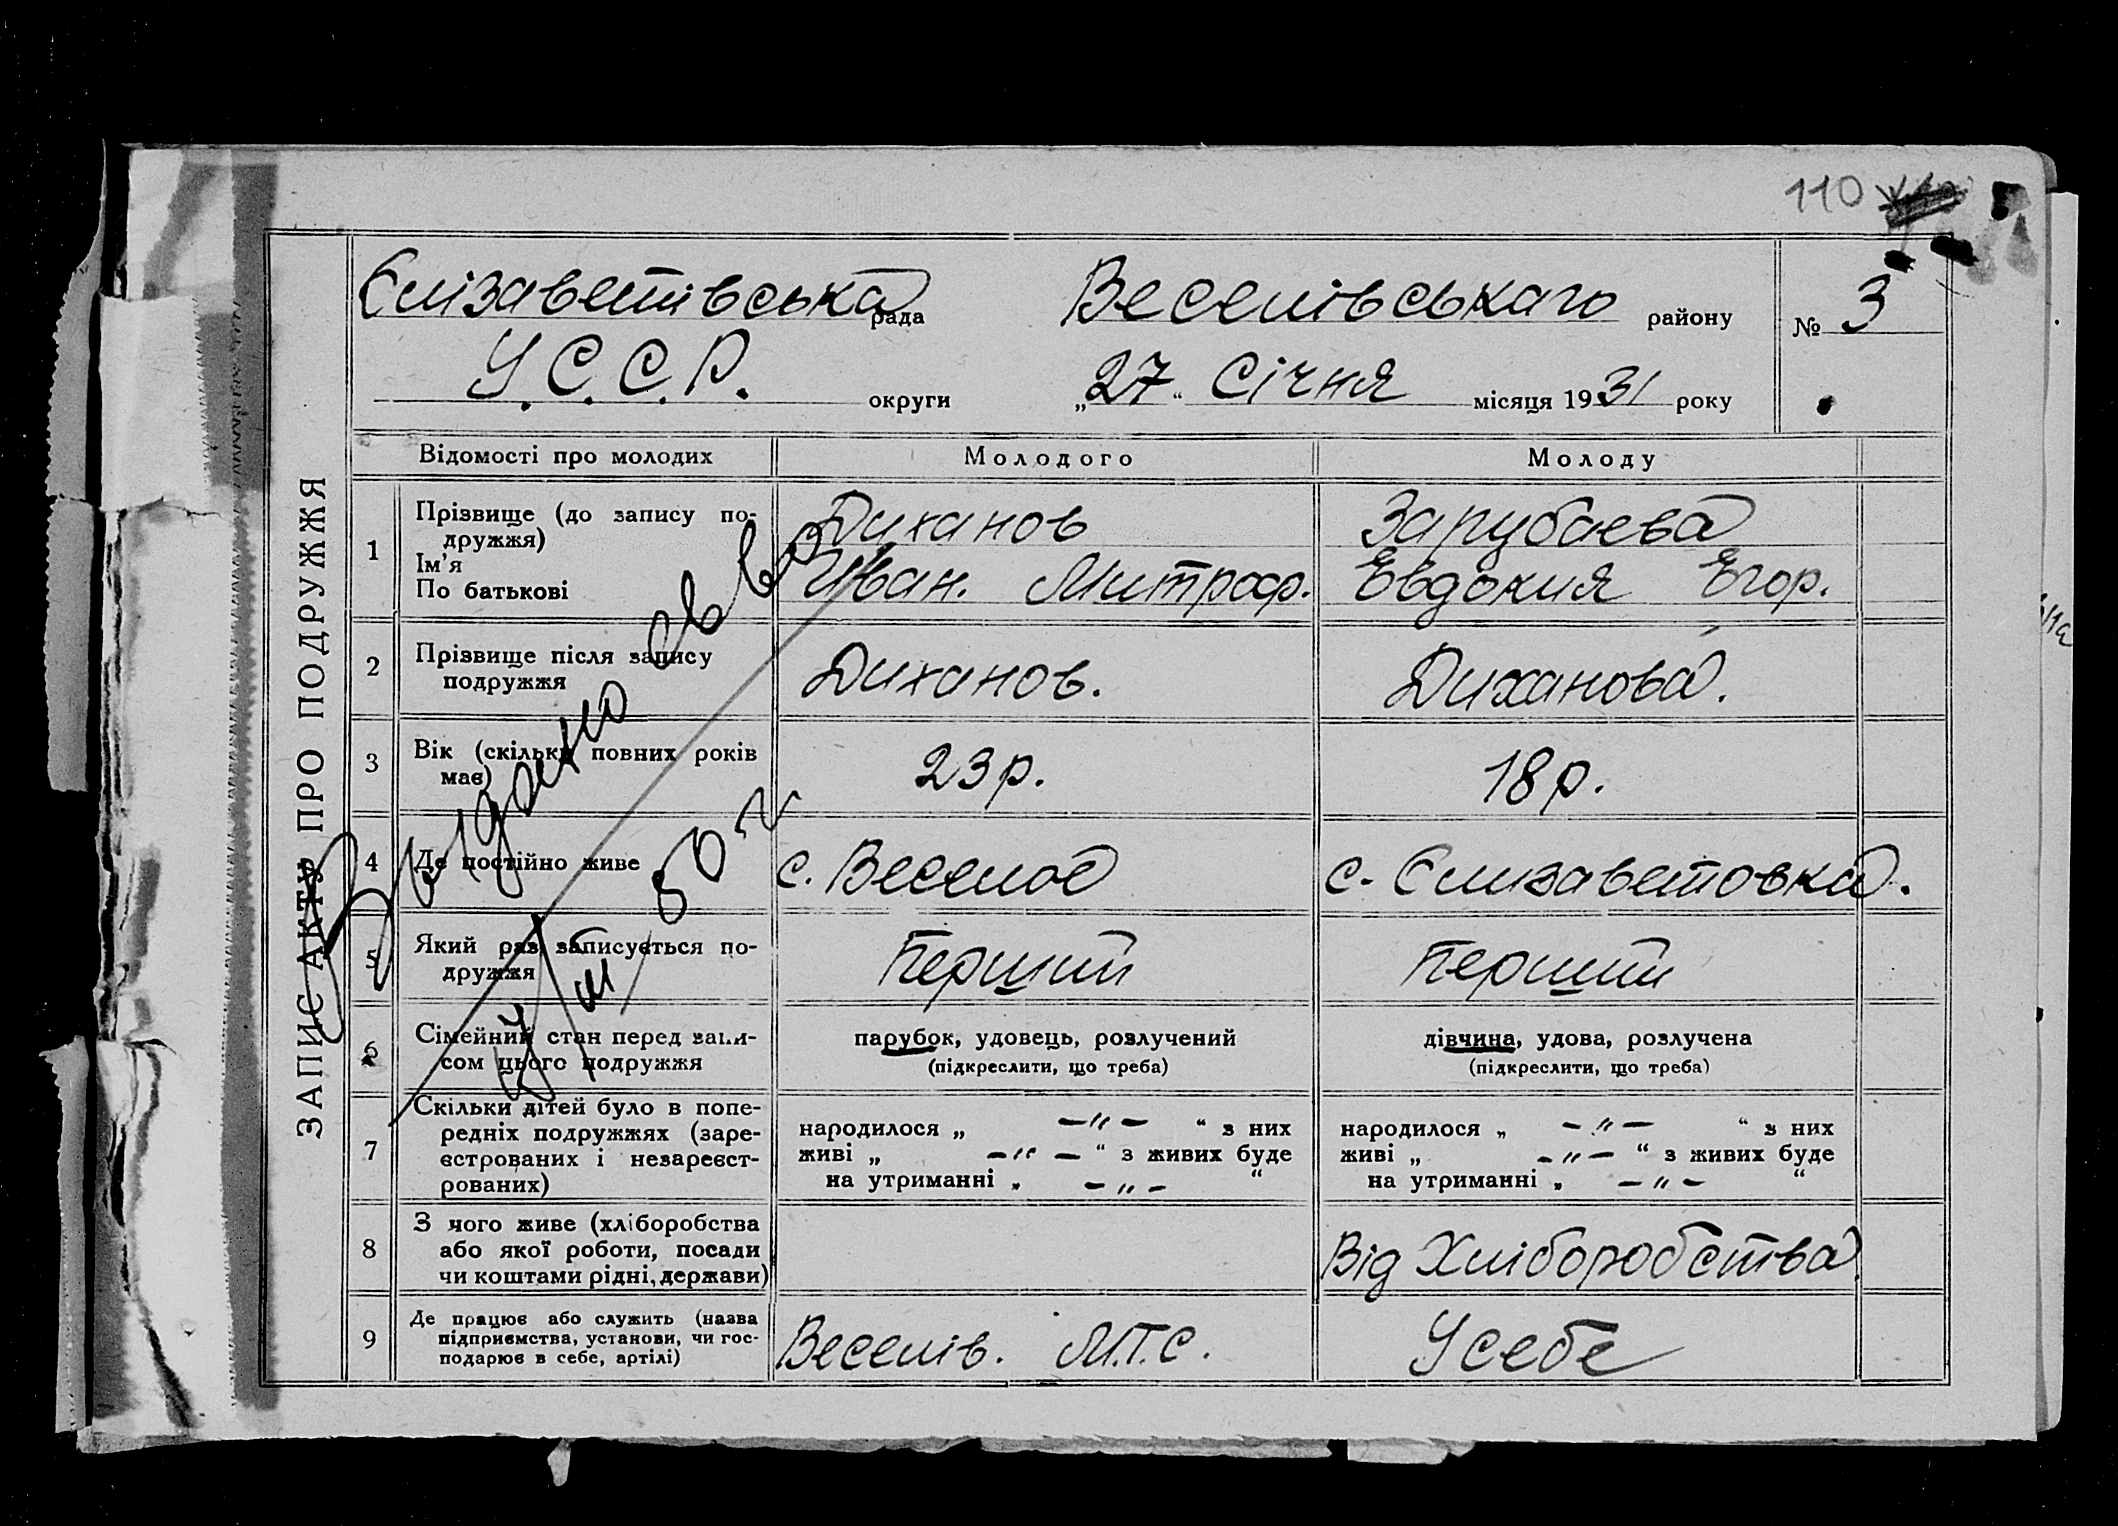 110
Єлізаветівська рада Веселівського району № 3
У.С.С.Р. округи „27“ Січня місяця 1931 року
ЗАПИС АКТУ ПРО ПОДРУЖЖЯ
Відомості про молодих Молодого Молоду
1 Прізвище (до запису по-
дружжя)
Диханов Зарубаева
Ім’я
По батькові
Иван. Митроф. Евдокия Егор.
2 Прізвище після запису
подружжя
Диханов. Диханова.
3 Вік (скільки повних років
має)
23 р. 18 р.
4 Де постійно живе с. Веселое с. Єлизаветовка.
5 Який раз записується по-
дружжя
Перший Перший
6 Сімейний стан перед запи-
сом цього подружжя
парубок, удовець, розлучений
(підкреслити, що треба)
дівчина, удова, розлучена
(підкреслити, що треба)
7 Скільки дітей було в попе-
редніх подружжях (заре-
єстрованих і незареєст-
рованих)
народилося „ –"– “ з них
живі „ –"– “ з живих буде
на утриманні „ –"– “
народилося „ –"– “ з них
живі „ –"– “ з живих буде
на утриманні „ –"– “
8 З чого живе (хліборобства
або якої роботи, посади
чи коштами рідні, держави)
Від Хліборобства
9 Де працює або служить (назва
підприємства, установи, чи гос-
подарює в себе, артілі)
Веселів. М.Т.С. Усебе
Выдано св во
50 г